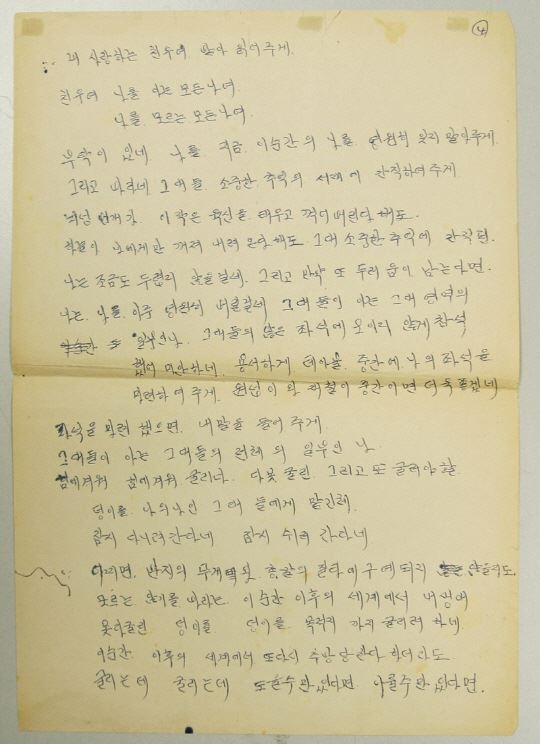 ④
사랑하는 친우여 받아 읽어주게.
친우여 나를 아는 모든 나여.
나를 모르는 모든 나여.
부탁이 있네. 나를, 지금 이순간의 나를, 영원히 잊지 말아주게.
그리고 바라네 그대들 소중한 추억의 서재에 간직하여주게
이 작은 육신을 태우고 꺾어버린다 해도.
하늘이 나에게만 꺼져 내려 온다해도 그대 소중한 추억에 간직된.
나는 조금도 두렵지 않을걸세. 그리고 만약 또 두려움이 남는다면.
나는, 나를 아주 영원히 버릴걸세 그대들이 아는 그대 영역의
일부인 나. 그대들의 앉은 좌석에 보이지 않게 참석
했네 미안하네. 용서하게 테이블 중간에 나의 좌석을
마련하여 주게. 원섭이와 재철이 중간이면 더욱 좋겠네
좌석을 마련 했으면, 내말을 들어 주게.
그대들이 아는 그대들의 전체의 일부인 나.
힘에겨워 힘에겨워 굴리다. 다못 굴린 그리고 또 굴려야 할
덩이를 나의 나인 그대들에게 맡긴채.
잠시 다니러 간다네 잠시 쉬러 간다네
어쩌면, 반지의 무게와 총칼의 질타에 구애되지 않을지도.
모르는 않기를 바라는 이 순간 이후의 세계에서 내 생애
못다굴린 덩이를 덩이를 목적지까지 굴리려 하네.
이순간 이후의 세계에서 또다시 추방 당한다 하더라도
굴리는데 굴리는데 도울수만 있다면, 이룰수만 있다면.